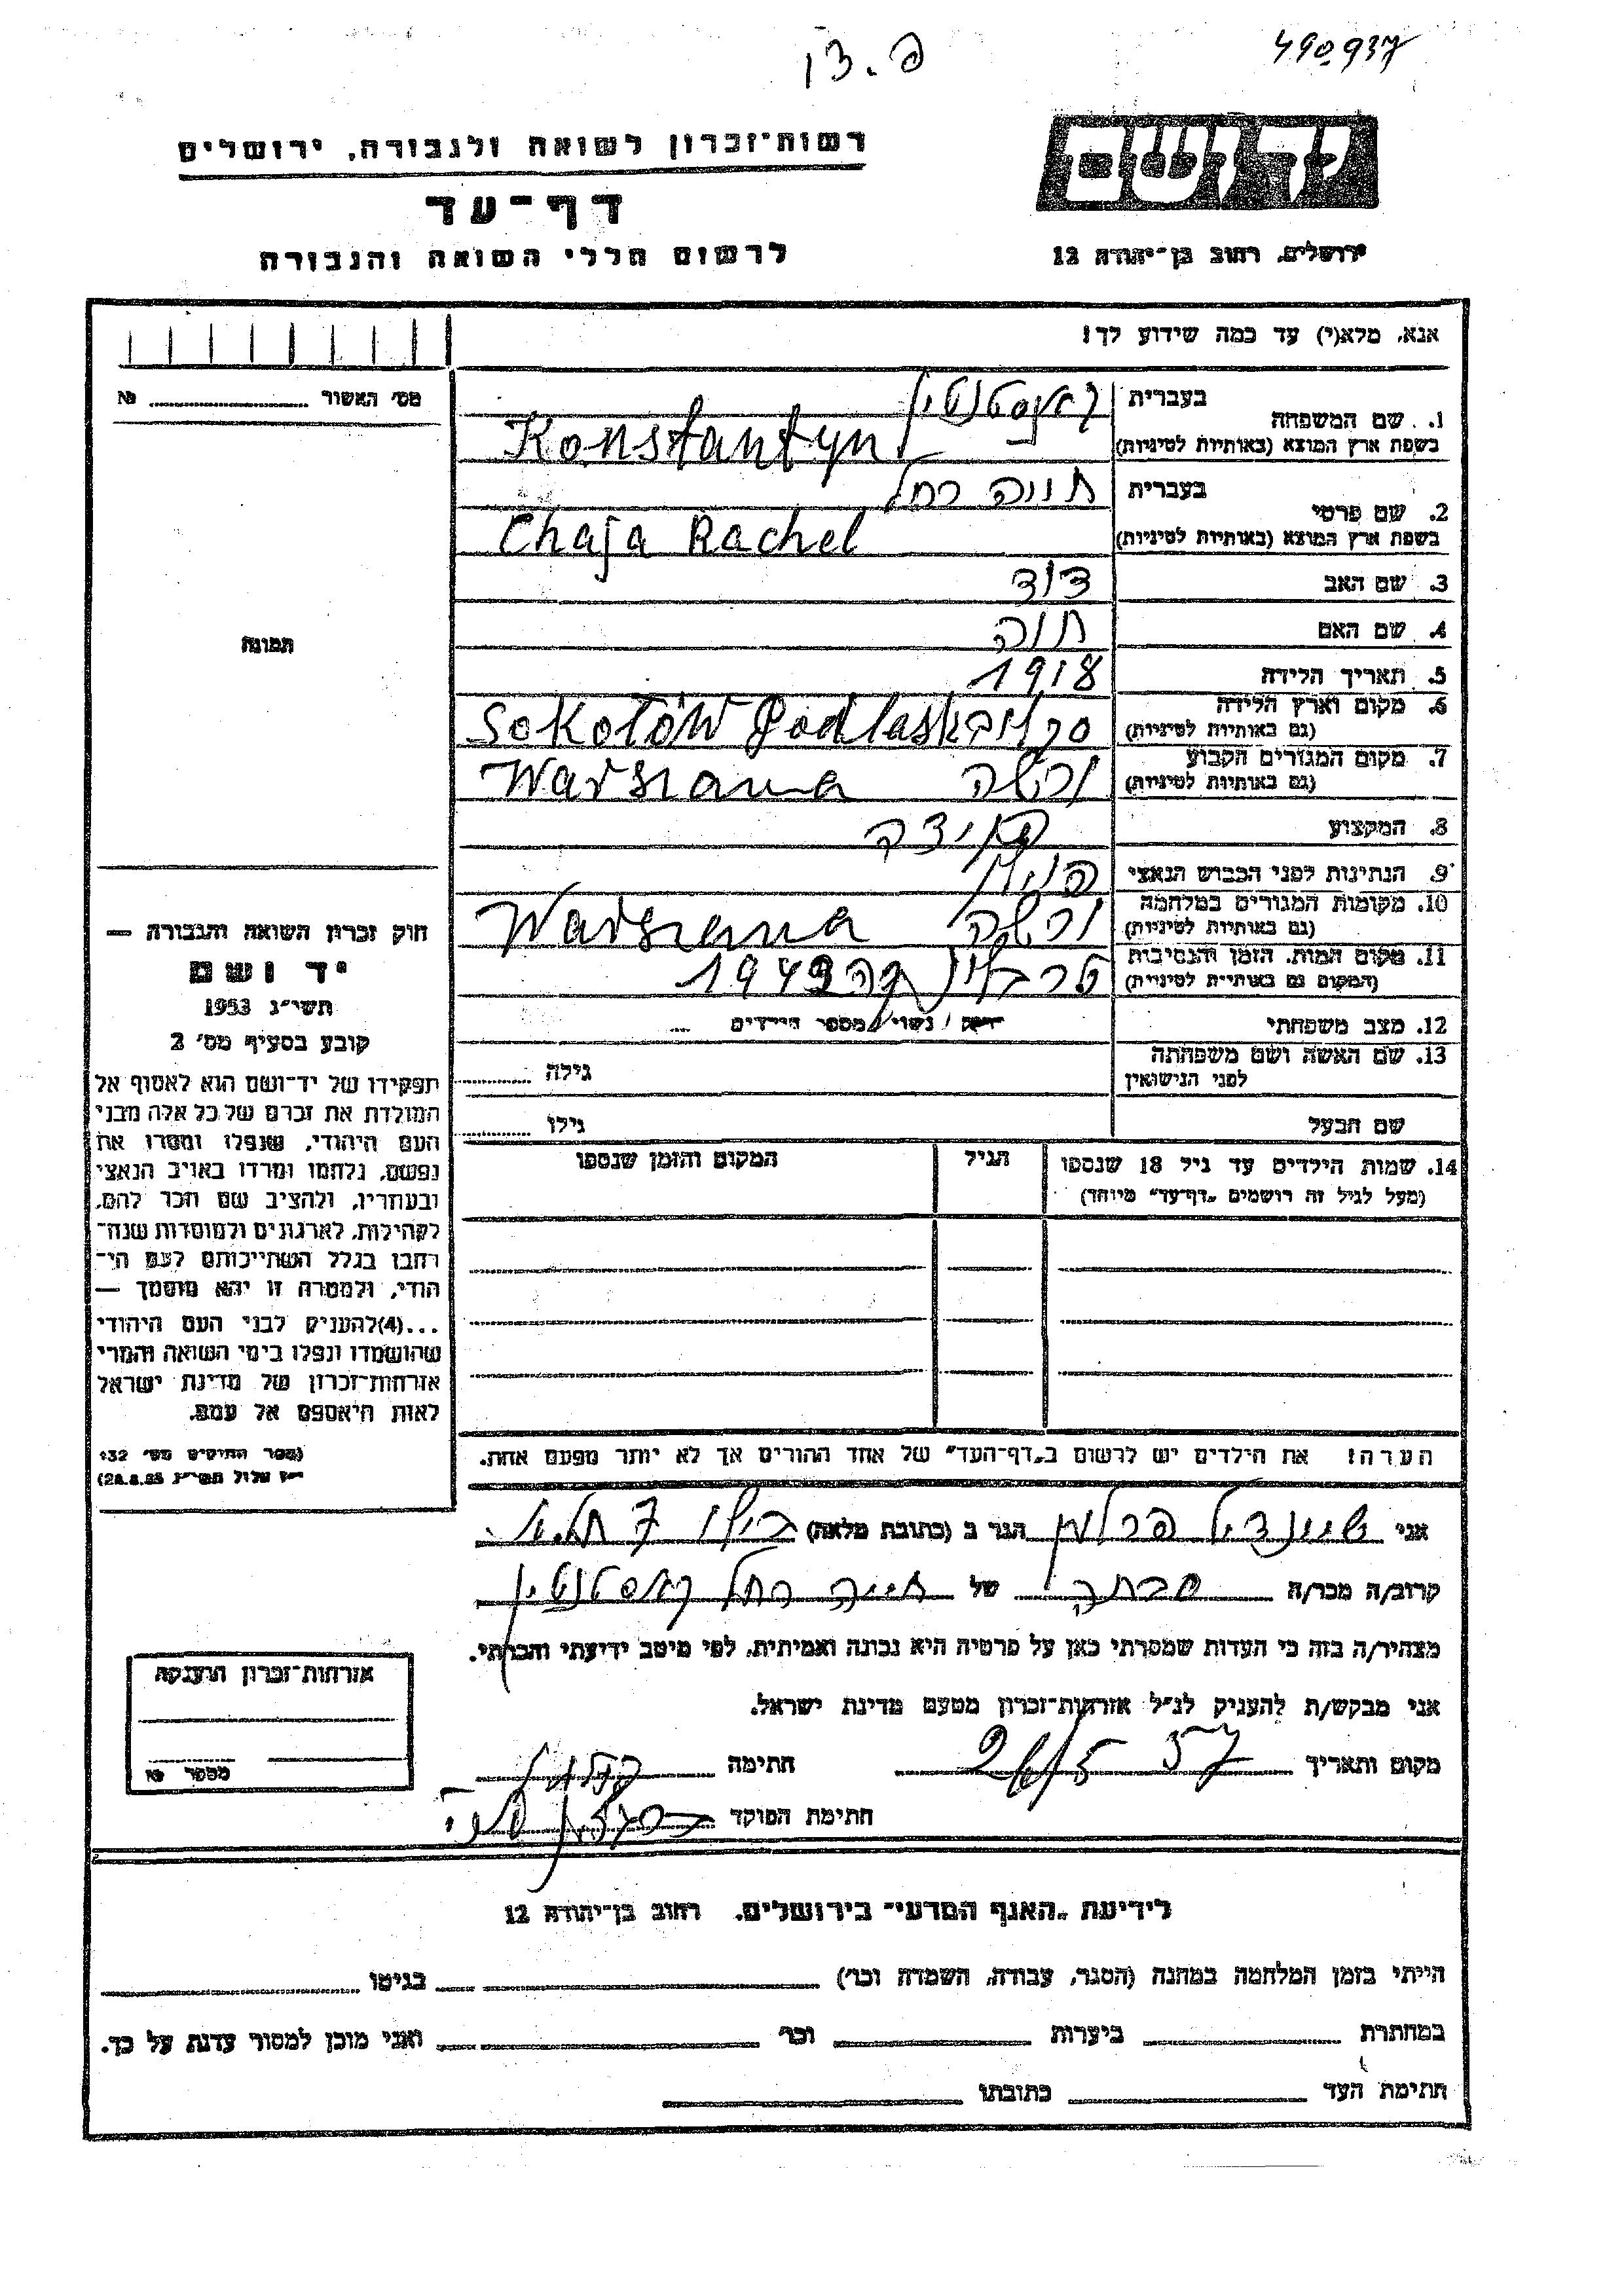 490937
פ. צו
יד ושם
רשות־זכרון לשואה ולגבורה, ירושלים
דף־עד
לרשום חללי השואה והגבורה
ירושלים, רחוב בן־יהודה 12
אנא, מלא(י) עד כמה שידוע לך!
מס׳ האשור № 
1. שם המשפחה
בעברית קאנסטנטין
בשפת ארץ המוצא (באותיות לטיניות) Konstantyn
2. שם פרטי
בעברית חייה רחל
בשפת ארץ המוצא (באותיות לטיניות) Chaja Rachel
3. שם האב דוד
4. שם האם חוה
5. תאריך הלידה 1918
6. מקום וארץ הלידה
(גם באותיות לטיניות) Sokołów Podlask
7. מקום המגורים הקבוע
(גם באותיות לטיניות) ורשה Warszawa
8. המקצוע
9. הנתינות לפני הכבוש הנאצי פולין
10. מקומות המגורים במלחמה
(גם באותיות לטיניות) ורשה Warszawa
11. מקום המות, הזמן והנסיבות
(המקום גם באותיות לטיניות) טרבלינקה
12. מצב משפחתי רווק / נשוי / מספר הילדים
13. שם האשה ושם משפחתה
לפני הנישואין גילה
שם הבעל גילו
14. שמות הילדים עד גיל 18 שנספו הגיל המקום והזמן שנספו
(מעל לגיל זה רושמים „דף־עד” מיוחד)
הערה! את הילדים יש לרשום ב„דף־העד” של אחד ההורים אך לא יותר מפעם אחת.
תמונה
חוק זכרון השואה והגבורה —
יד ושם
תשי״ג 1953
קובע בסעיף מס׳ 2
תפקידו של יד־ושם הוא לאסוף אל
המולדת את זכרם של כל אלה מבני
העם היהודי, שנפלו ומסרו את
נפשם, נלחמו ומרדו באויב הנאצי
ובעוזריו, ולהציב שם וזכר להם,
לקהילות, לארגונים ולמוסדות שנח־
רבו בגלל השתייכותם לעם הי־
הודי, ולמטרה זו יהא מוסמך —
...(4)להעניק לבני העם היהודי
שהושמדו ונפלו בימי השואה והמרי
אזרחות־זכרון של מדינת ישראל
לאות היאספם אל עמם.
(ספר החוקים מס׳ 132
אלול תשי״ג
אני שיינדיל פרלמן הגר ב (כתובת מלאה) בילו 7
קרוב/ה מכר/ה של חייה רחל קאנסטנטין
מצהיר/ה בזה כי העדות שמסרתי כאן על פרטיה היא נכונה ואמיתית, לפי מיטב ידיעתי והכרתי.
אני מבקש/ת להעניק לנ״ל אזרחות־זכרון מטעם מדינת ישראל.
מקום ותאריך 57 חתימה
חתימת הפוקד
אזרחות־זכרון הוענקה
מספר №
לידיעת „האגף המדעי” בירושלים, רחוב בן־יהודה 12
הייתי בזמן המלחמה במחנה (הסגר, עבודה, השמדה וכו׳) בגיטו
במחתרת ביערות וכו׳ ואני מוכן למסור עדות על כך.
חתימת העד כתובתו